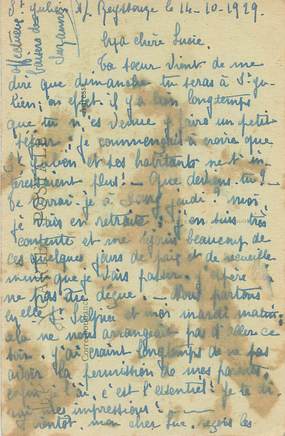 St Julien s/ Reyssouze le 14-10-1929.
Ma chère Lucie.
Ta sœur vient de me
dire que dimanche tu seras à St Ju-
lien; en effet il y a bien longtemps
que tu n'es venue y faire un petit
séjour. Je commençais à croire que
et ses habitants ne t'in-
téressaient plus! - Que deviens-tu?
Te verrai-je à jeudi? moi,
je vais en retraite; j'en suis très
contente et me réjouis beaucoup de
ces quelques jours de paix et de recueille-
ment que je vais passer. J'espère
ne pas être déçue - Nous partons
St Sulpice et moi mardi matin
cela ne nous arrangeait pas d'aller ce
soir. J'ai craint longtemps de ne pas
avoir la permission de mes parents,
enfin j'ai, c'est l'essentiel! Je te di-
rai mes impressions!
bientôt, mon cher Luc. reçois les
affectueux
baisers de
Suzanne